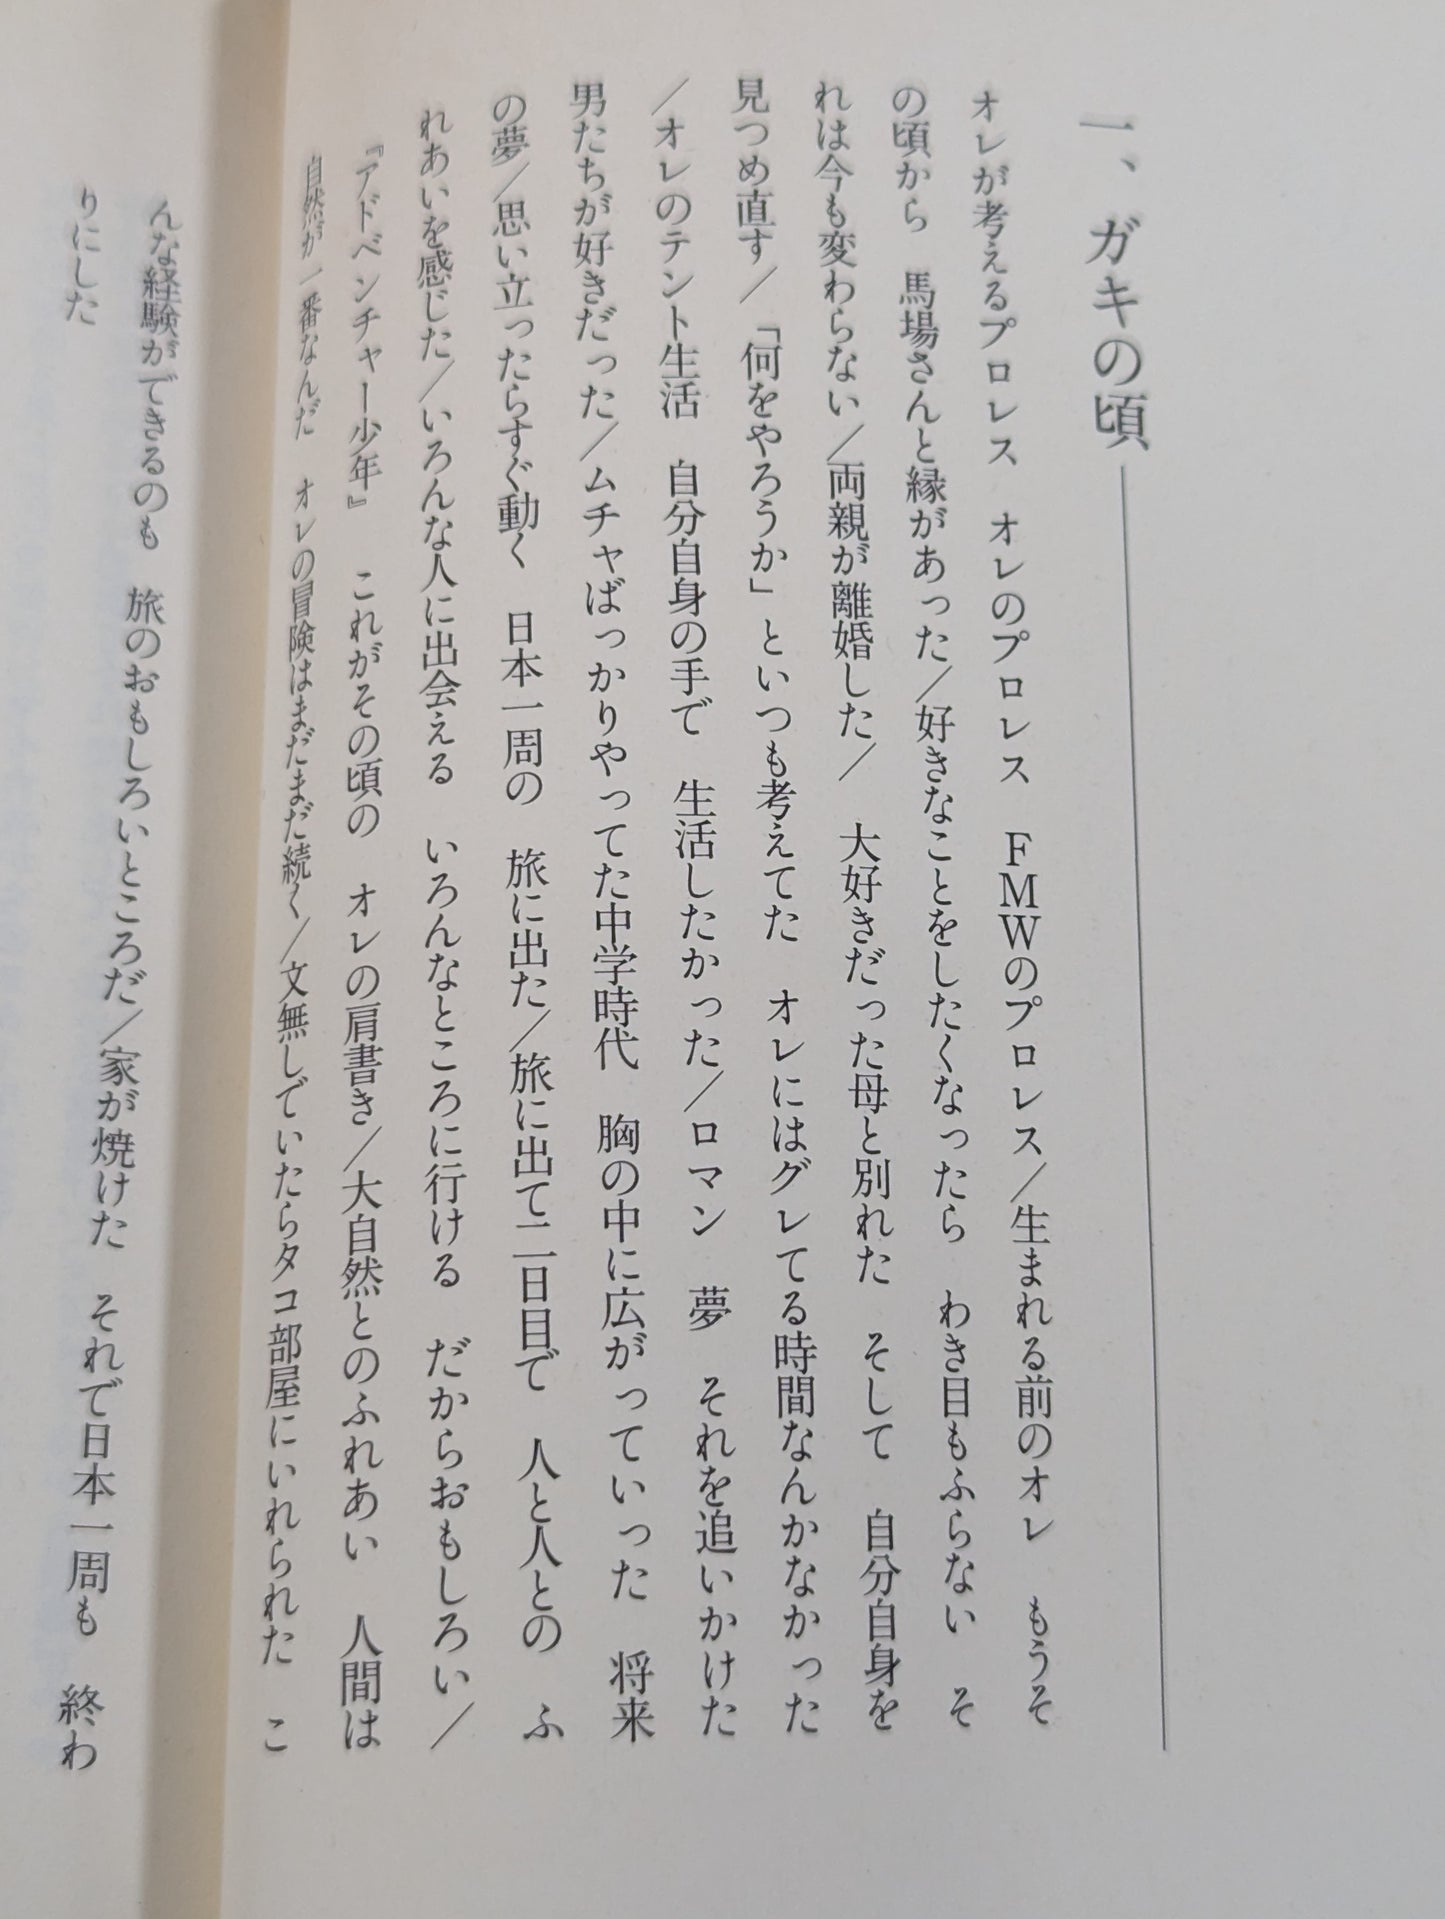 一、ガキの頃
オレが考えるプロレス　オレのプロレス　ＦＭＷのプロレス／生まれる前のオレ　もうそ
の頃から　馬場さんと縁があった／好きなことをしたくなったら　わき目もふらない　そ
れは今も変わらない／両親が離婚した／　大好きだった母と別れた　そして　自分自身を
見つめ直す／「何をやろうか」といつも考えてた　オレにはグレてる時間なんかなかった
／オレのテント生活　自分自身の手で　生活したかった／ロマン　夢　それを追いかけた
男たちが好きだった／ムチャばっかりやってた中学時代　胸の中に広がっていった　将来
の夢／思い立ったらすぐ動く　日本一周の　旅に出た／旅に出て二日目で　人と人との　ふ
れあいを感じた／いろんな人に出会える　いろんなところに行ける　だからおもしろい／
『アドベンチャー少年』　これがその頃の　オレの肩書き／大自然とのふれあい　人間は
自然が一番なんだ　オレの冒険はまだまだ続く／文無しでいたらタコ部屋にいれられた　こ
んな経験ができるのも　旅のおもしろいところだ／家が焼けた　それで日本一周も　終わ
りにした